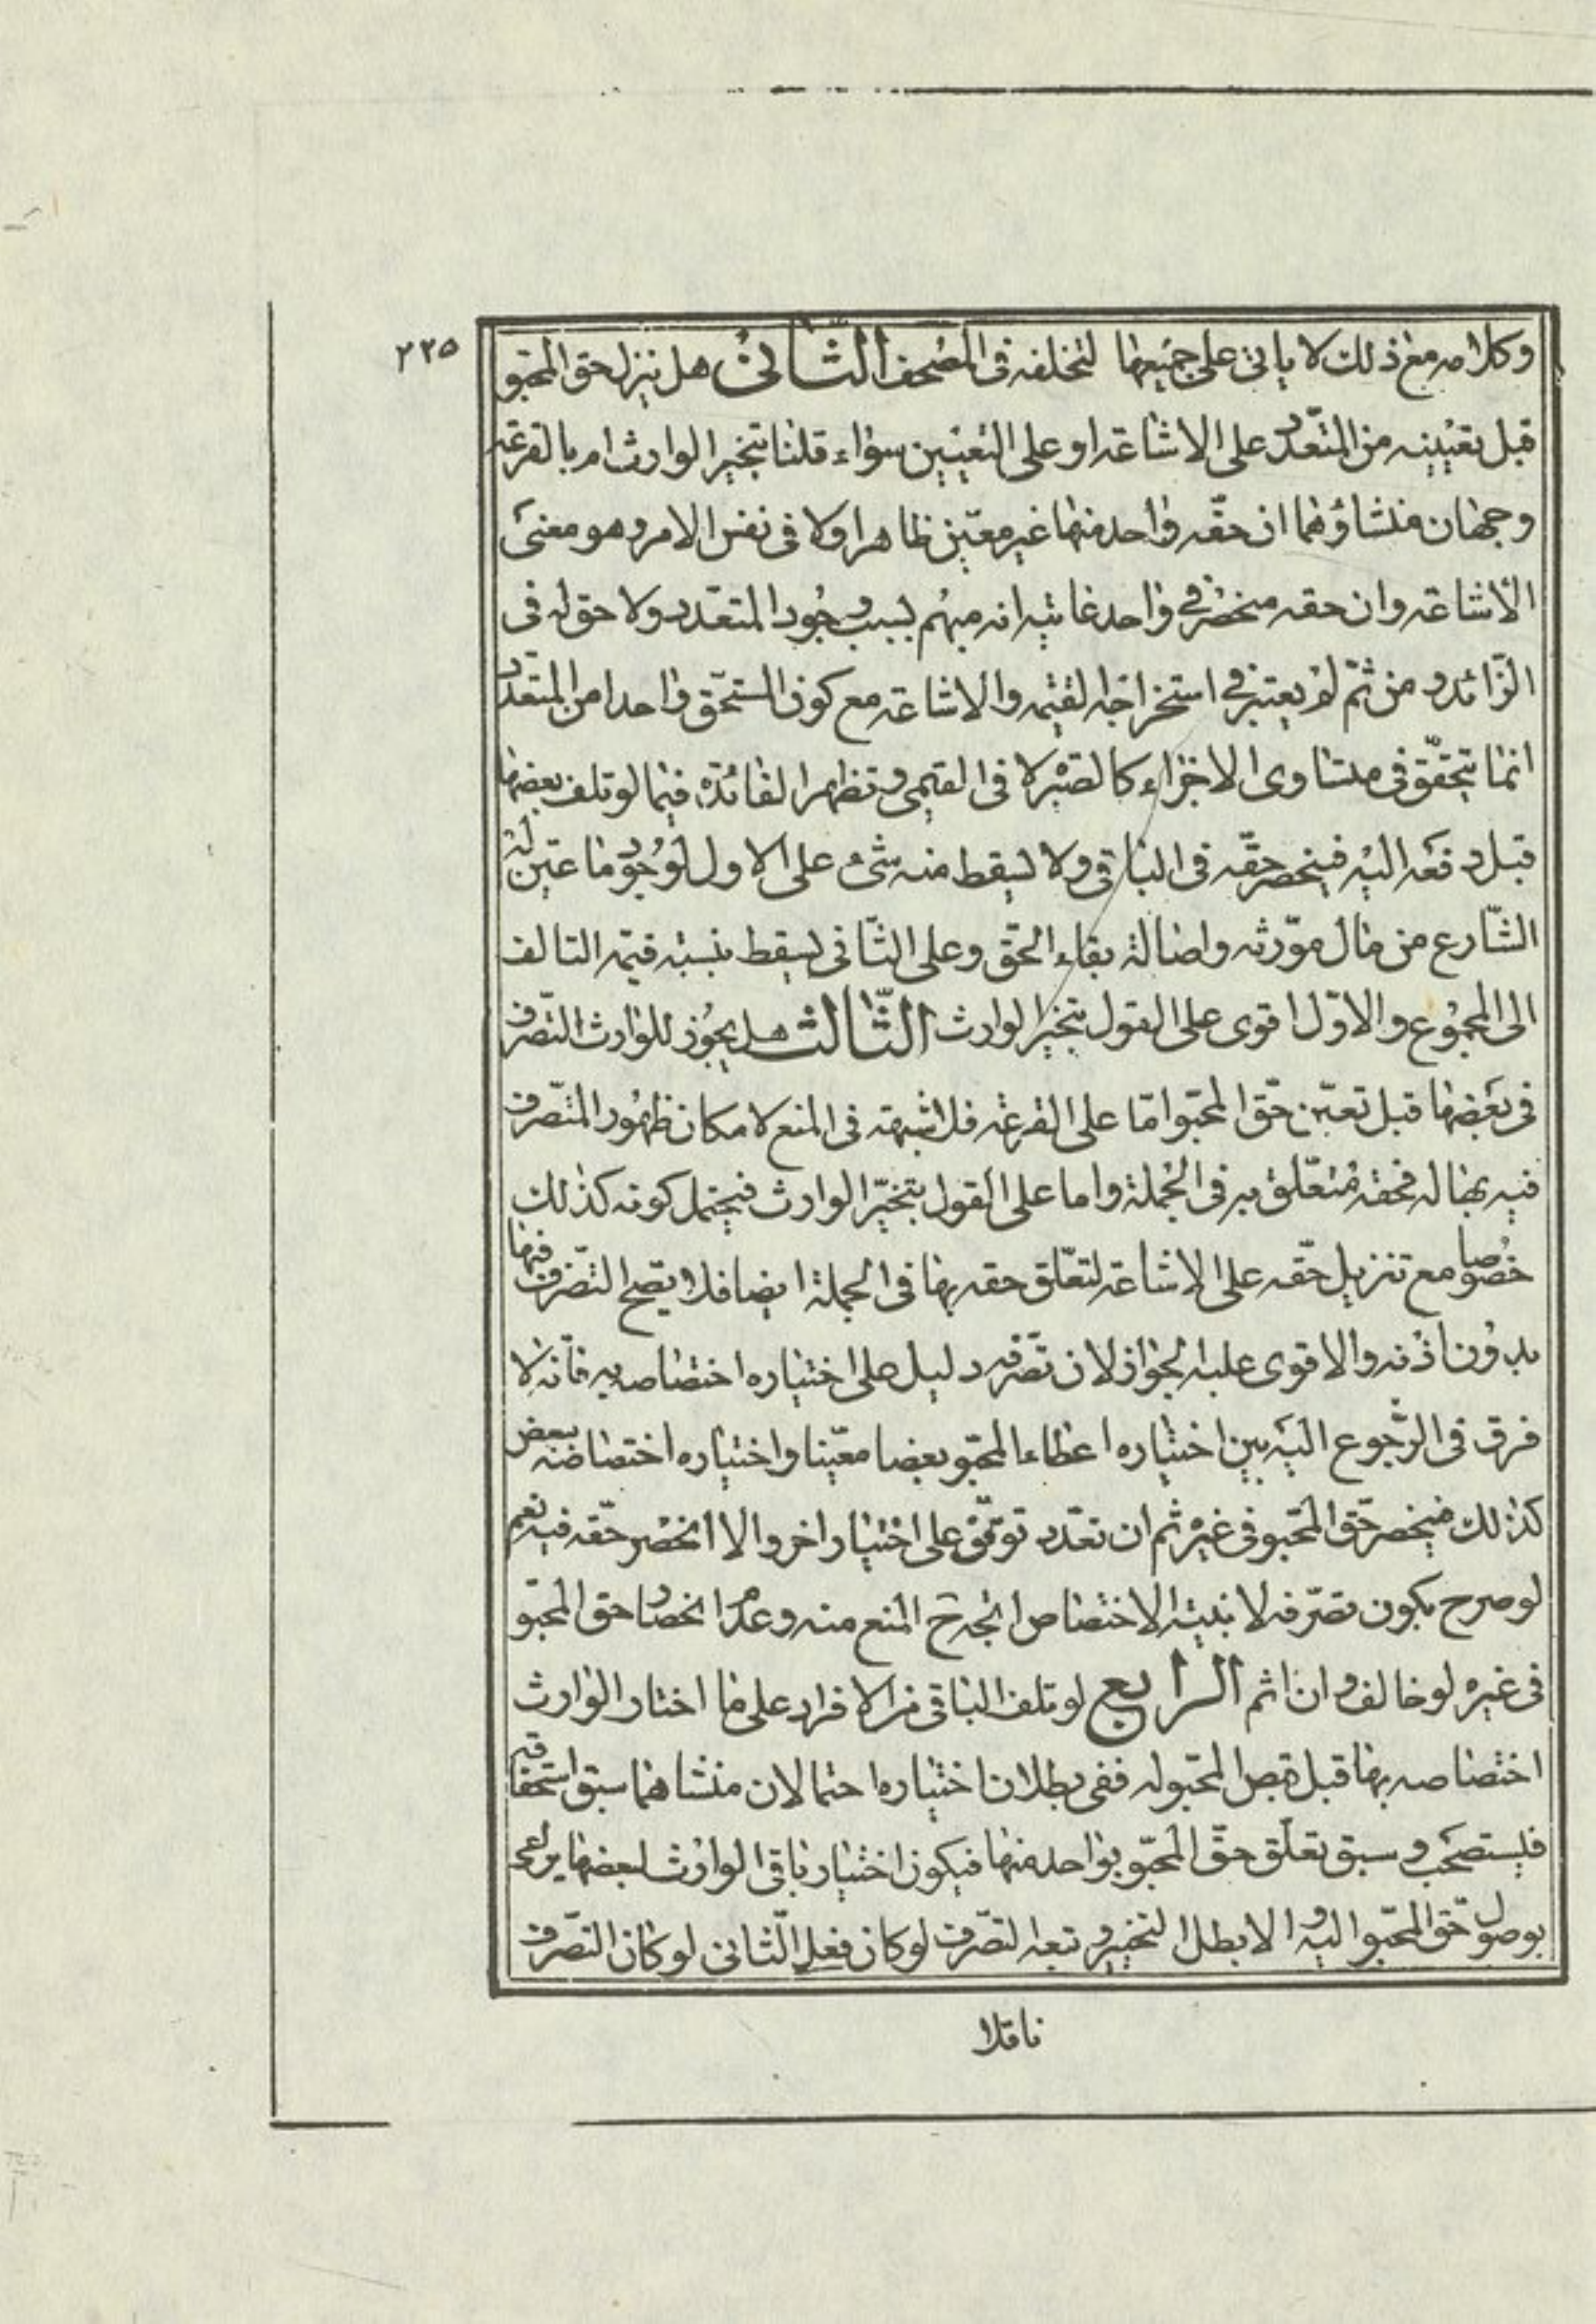 ٢٢٥
وكلامه مع ذلك لا ياتى على جميعها لتخلفه فى المصحف الثانى هل ينزل حق المحبو
قبل تعيينه من المتعدد على الاشاعة او على التعيين سواء قلنا بتخير الوارث ام بالقرعة
وجهان منشاؤهما ان حقه واحد منها غير معين ظاهرا ولا فى نفس الامر وهو معنى
الاشاعة وان حقه منحصر فى واحد غايته انه مبهم بسبب وجود المتعدد ولا حق له فى
الزائد ومن ثم لم يعتبر فى استخراجه القيمة والاشاعة مع كون المستحق واحدا من المتعدد
انما يتحقق فى متساوى الاجزاء كالصبرة لا فى القيمى وتظهر الفائدة فيما لو تلف بعضها
قبل دفعه اليه فينحصر حقه فى الباقى ولا يسقط منه شئ على الاول لوجود ما عين له
الشارع من مال مورثه واصالة بقاء الحق وعلى الثانى يسقط بنسبة قيمة التالف
الى المجموع والاول اقوى على القول بتخير الوارث الثالث هل يجوز للوارث التصرف
فى بعضها قبل تعين حق المحبو اما على القرعة فلا شبهة فى المنع لامكان ظهور المتصرف
فيه بها له فحقه متعلق به فى الجملة واما على القول بتخير الوارث فيحتمل كونه كذلك
خصوصا مع تنزيل حقه على الاشاعة لتعلق حقه بها فى الجملة ايضا فلا يصح التصرف فيها
بدون اذنه والاقوى عليه الجواز لان تصرفه دليل على اختياره اختصاصه به فانه لا
فرق فى الرجوع اليه بين اختياره اعطاء المحبو بعضا معينا واختياره اختصاصه ببعض
كذلك فينحصر حق المحبو فى غيره ثم ان تعدد توقف على اختيار اخر والا انحصر حقه فيه نعم
لو صرح بكون تصرفه لا بنية الاختصاص اتجه ح المنع منه وعدم انحصار حق المحبو
فى غيره لو خالف وان اثم الرابع لو تلف الباقى من الافراد على ما اختار الوارث
اختصاصه بها قبل قبض المحبو له ففى بطلان اختياره احتمالان منشاهما سبق استحقاقه
فليستصحب وسبق تعلق حق المحبو بواحد منها فيكون اختيار باقى الوارث لبعضها مراعى
بوصول حق المحبو اليه والا بطل التخير وتبعه التصرف لو كان فعل الثانى لو كان التصرف
ناقلا